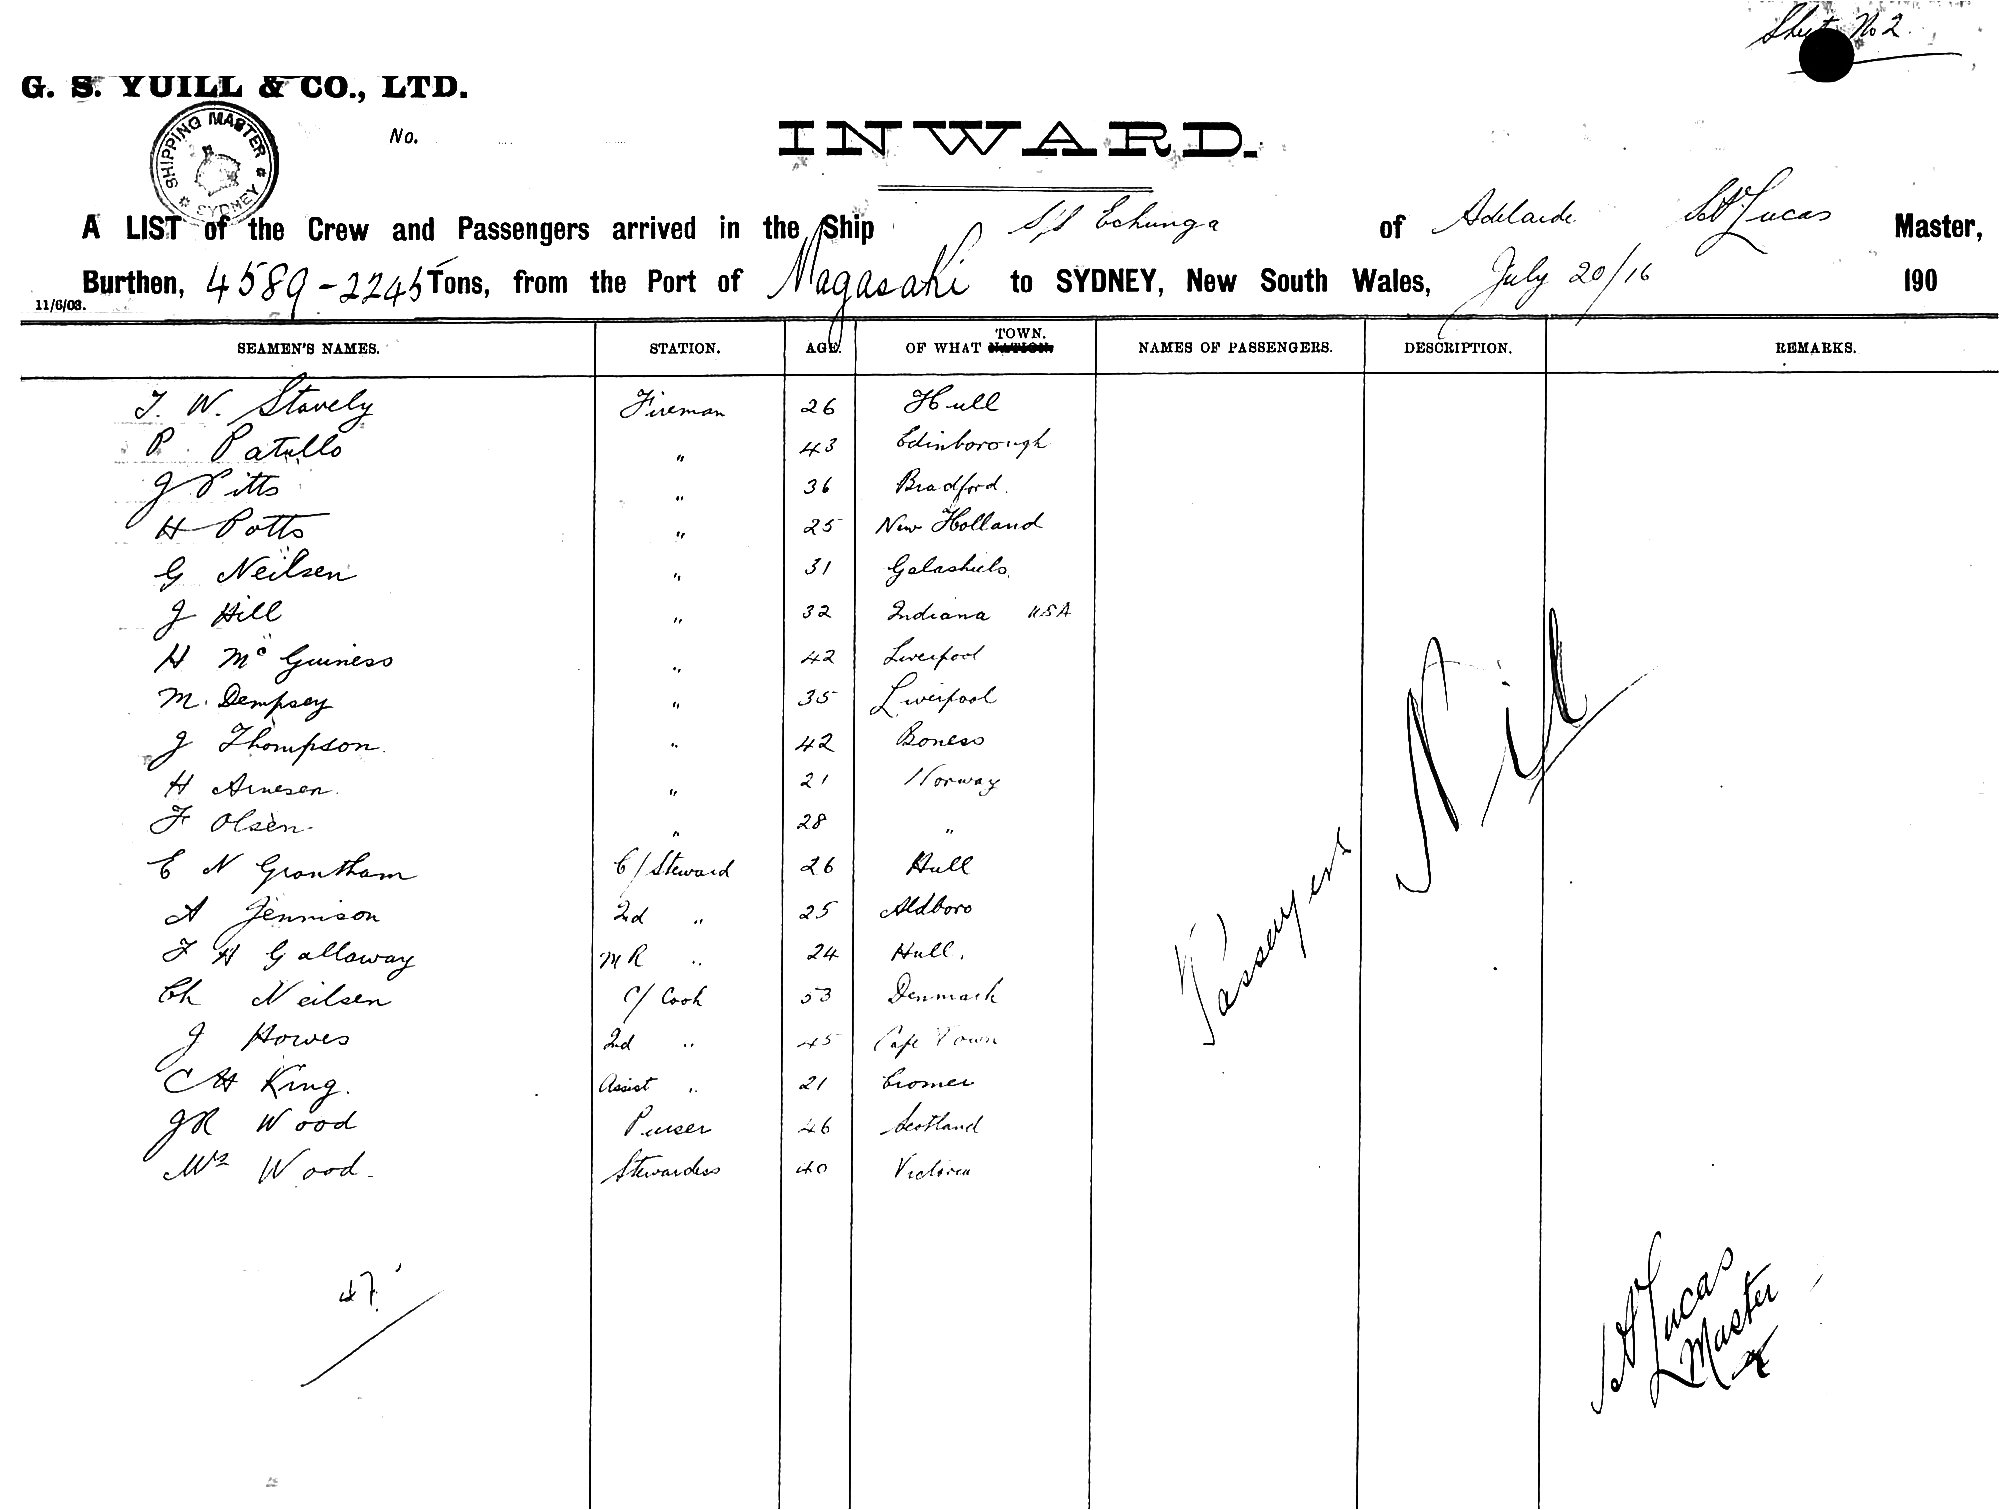 Sheet No 2
G. S. YUILL & CO., LTD.
SHIPPING MASTER SYDNEY
No.
INWARD.
A LIST of the Crew and Passengers arrived in the Ship S/S Echunga of Adelaide Lucas Master,
Burthen, 4589-2245 Tons, from the Port of Nagasaki to SYDNEY, New South Wales, July 20/16 190
11/6/08.
SEAMEN'S NAMES. STATION. AGE. OF WHAT NATION. TOWN. NAMES OF PASSENGERS. DESCRIPTION. REMARKS.
T. W. Stavely Fireman 26 Hull
P. Patullo " 43 Edinborough
J Pitts " 36 Bradford.
H Potts " 25 New Holland
G Neilsen " 31 Galashiels
J Hill " 32 Indiana USA
H Mc Guiness " 42 Liverpool
M. Dempsey " 35 Liverpool
J Thompson. " 42 Boness
H Arnesen. " 21 Norway
F Olsen. " 28 "
E N Grantham C/Steward 26 Hull
A Jennison 2nd " 25 Aldboro
F H Galloway MR " 24 Hull.
Ch Neilsen C/ Cook 53 Denmark
J Howes 2nd " 45 Cape Town
C H King. Assist " 21 Cromer
JR Wood Purser 46 Scotland
Mrs Wood. Stewardess 40 Victoria
Passengers Nil
47
Lucas
Master